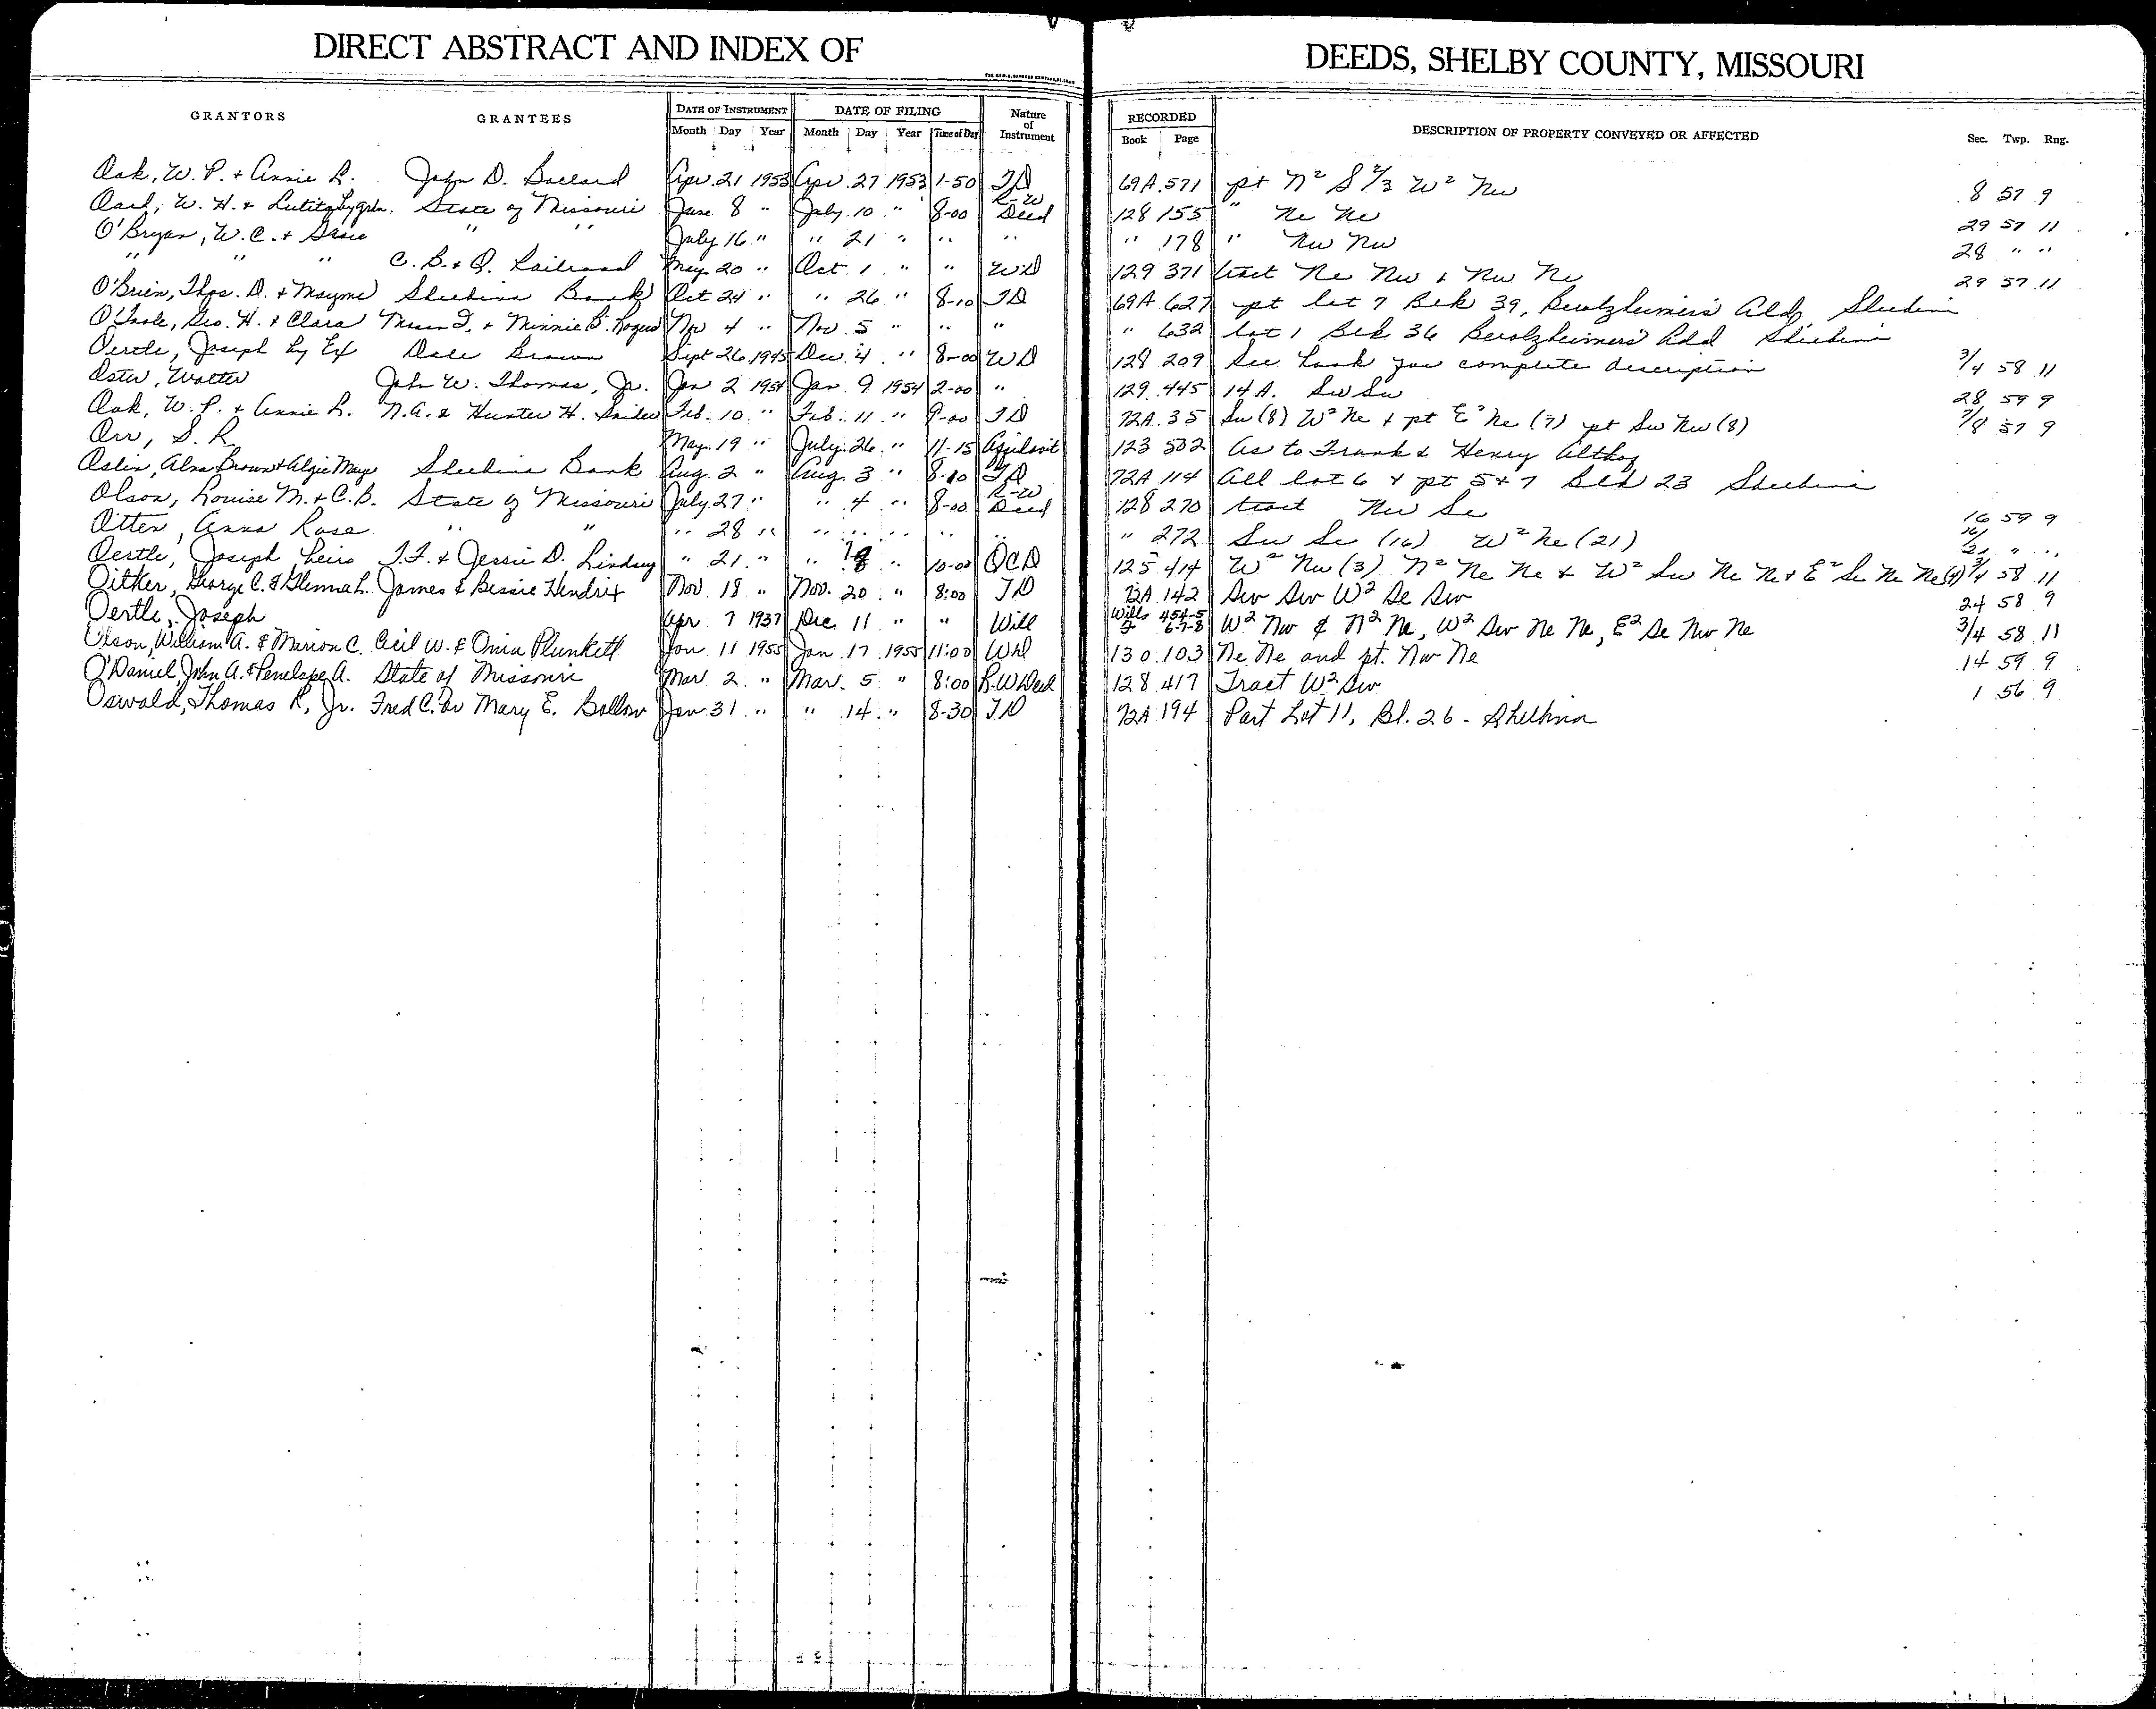 DIRECT ABSTRACT AND INDEX OF DEEDS, SHELBY COUNTY, MISSOURI
GRANTORS GRANTEES DATE OF INSTRUMENT DATE OF FILING Nature of Instrument RECORDED DESCRIPTION OF PROPERTY CONVEYED OR AFFECTED Sec. Twp. Rng.
Month Day Year Month Day Year Time of Day Book Page
Oak, W. P. + Annie L. John D. Ballard Apr. 21 1953 Apr. 27 1953 1-50 TD 69A 571 pt N² S 2/3 W² Nw 8 57 9
W. H. + State of Missouri June 8 " July 10 " 8-00 R-W Deed 128 155 " Ne Ne 29 57 11
O'Bryan, W. C. + " " July 16 " " 21 " " " " 178 " Nw Nw 28 " "
" " " C. B. + Q. Railroad May 20 " Oct 1 " " WD 129 371 tract Ne Nw + Nw Ne 29 57 11
O'Brien, Thos. D. + Mayme Shelbina Bank Oct 24 " " 26 " 8-10 TD 69A 627 pt lot 7 Blk 39, Berolzheimer's Add, Shelbina
O'Toole, Geo. H. + Clara + Minnie B. Rogers Nov 4 " Nov. 5 " " " " 632 lot 1 Blk 36 Berolzheimers Add Shelbina
Oertle, Joseph by Ex Dale Brown Sept 26 1945 Dec. 4 " 8-00 WD 128 209 See book for complete description 3/4 58 11
Oster, Walter John W. Thomas, Jr. Jan 2 1954 Jan. 9 1954 2-00 " 129 445 14 A. Sw Sw 28 59 9
Oak, W. P. + Annie L. N. A. & Hunter H. Snider Feb. 10 " Feb. 11 " 9-00 TD 72A 35 Sw (8) W² Ne + pt E² Ne (7) pt Sw Nw (8) 7/8 57 9
Orr, S. R. May 19 " July 26 " 11-15 Affidavit 123 502 As to Frank & Henry Althoff
Oslin, Alva Brown + Algie Maye Shelbina Bank Aug. 2 " Aug. 3 " 8-10 TD 72A 114 All lot 6 + pt 5 + 7 Blk 23 Shelbina
Olson, Louise M. + C. B. State of Missouri July 27 " " 4 " 8-00 R-W Deed 128 270 tract Nw Se 16 59 9
Otten, Anna Rose " " " 28 " " " " " " " 272 Sw Se (16) W² Ne (21) 16/21 " "
Oertle, Joseph heirs T. F. + Jessie D. Lindsey " 21 " " " 10-00 QCD 125 414 W² Nw (3) N² Ne Ne + W² Sw Ne Ne + E² Se Ne Ne (4) 3/4 58 11
Oitker, George C. & Glenna L. James & Bessie Hendrix Nov. 18 " Nov. 20 " 8:00 TD 72A 142 Sw Sw W² Se Sw 24 58 9
Oertle, Joseph Apr 7 1937 Dec 11 " " Will Wills 454-5 6-7-8 W² Nw & N² Ne, W² Sw Ne Ne, E² Se Nw Ne 3/4 58 11
Olson, William A. & Marion C. Cecil W. & Onia Plunkett Jan 11 1955 Jan. 17 1955 11:00 WD 130 103 Ne Ne and pt. Nw Ne 14 59 9
O'Daniel, John A. & Penelope A. State of Missouri Mar 2 " Mar. 5 " 8:00 R.W Deed 128 417 Tract W² Sw 1 56 9
Oswald, Thomas R, Jr. Fred C. or Mary E. Bollow Jan 31 " " 14 " 8-30 TD 72A 194 Part Lot 11, Bl. 26 - Shelbina